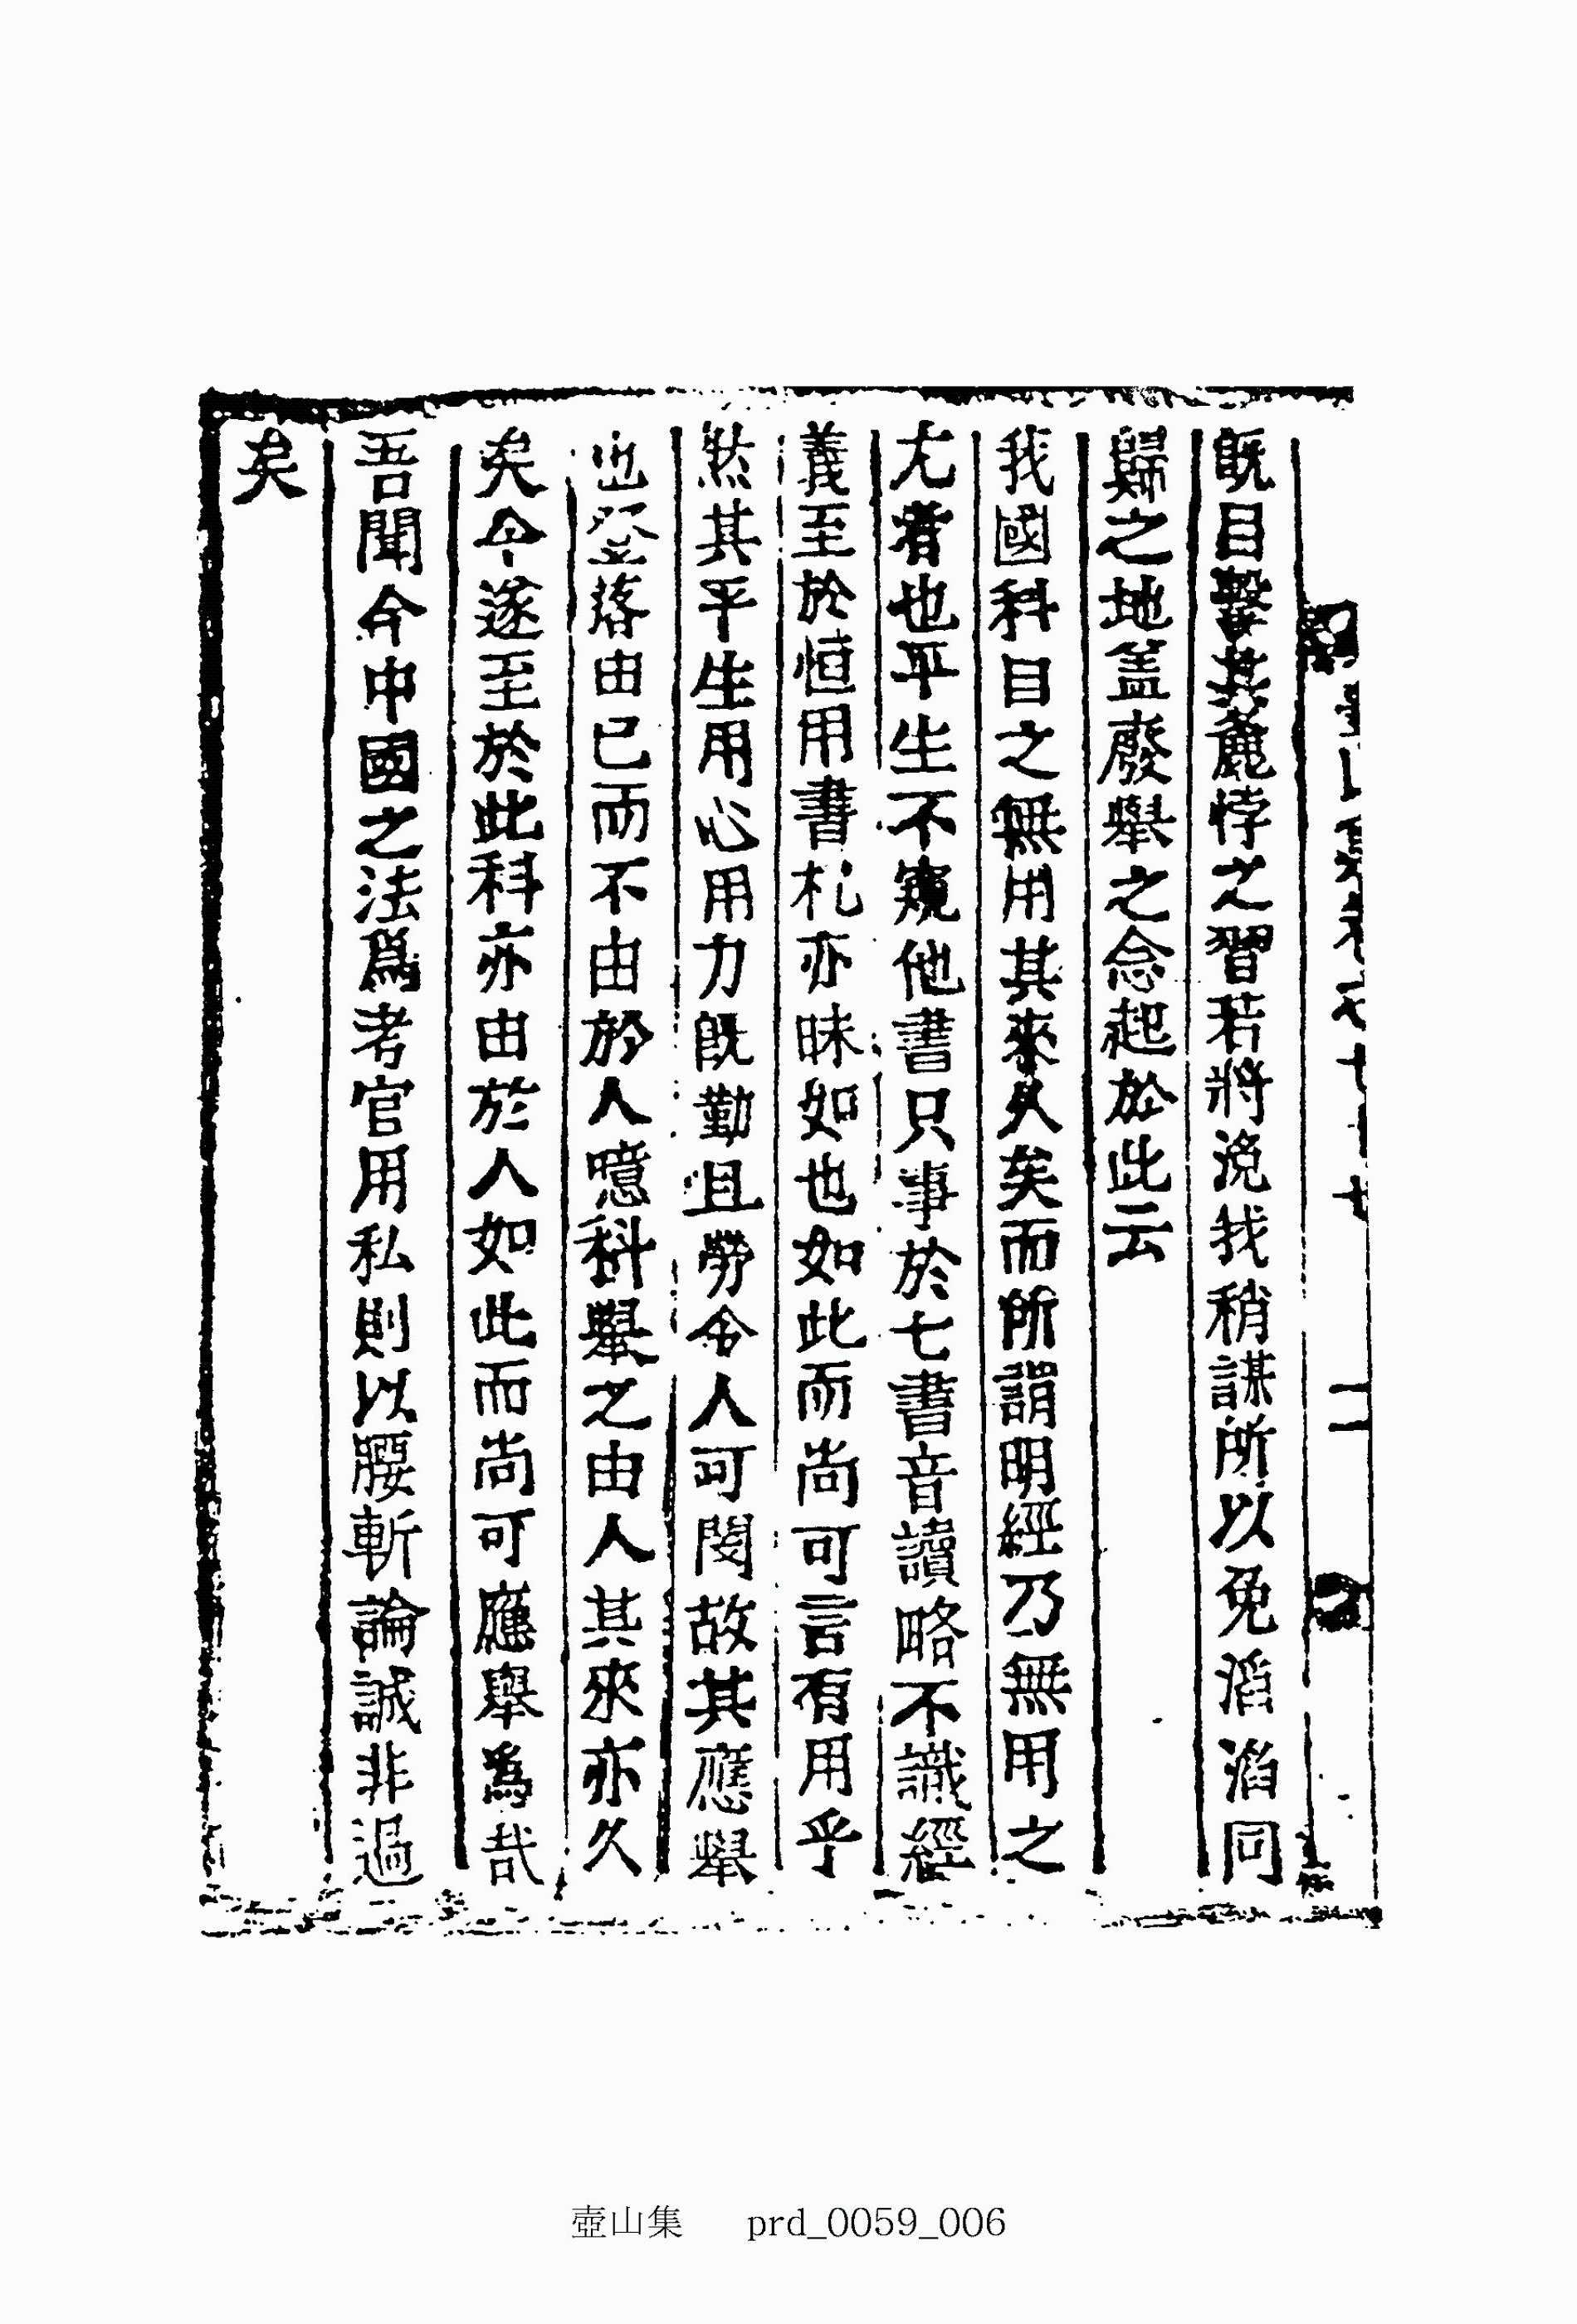 既目擊其麁悖之習若將浼我稍謀所以免滔滔同
歸之地盖廢擧之念起於此云
我國科目之無用其來久矣而所謂明經乃無用之
尤者也平生不窺他書只事於七書音讀略不識經
義至於恒用書札亦昧如也如此而尚可言有用乎
然其平生用心用力旣勤且勞令人可閔故其應擧
也登落由已而不由於人噫科擧之由人其來亦久
矣今遂至於此科亦由於人如此而尚可應擧爲哉
吾聞今中國之法爲考官用私則以腰斬論誠非過
矣
壺山集 prd_0059_006